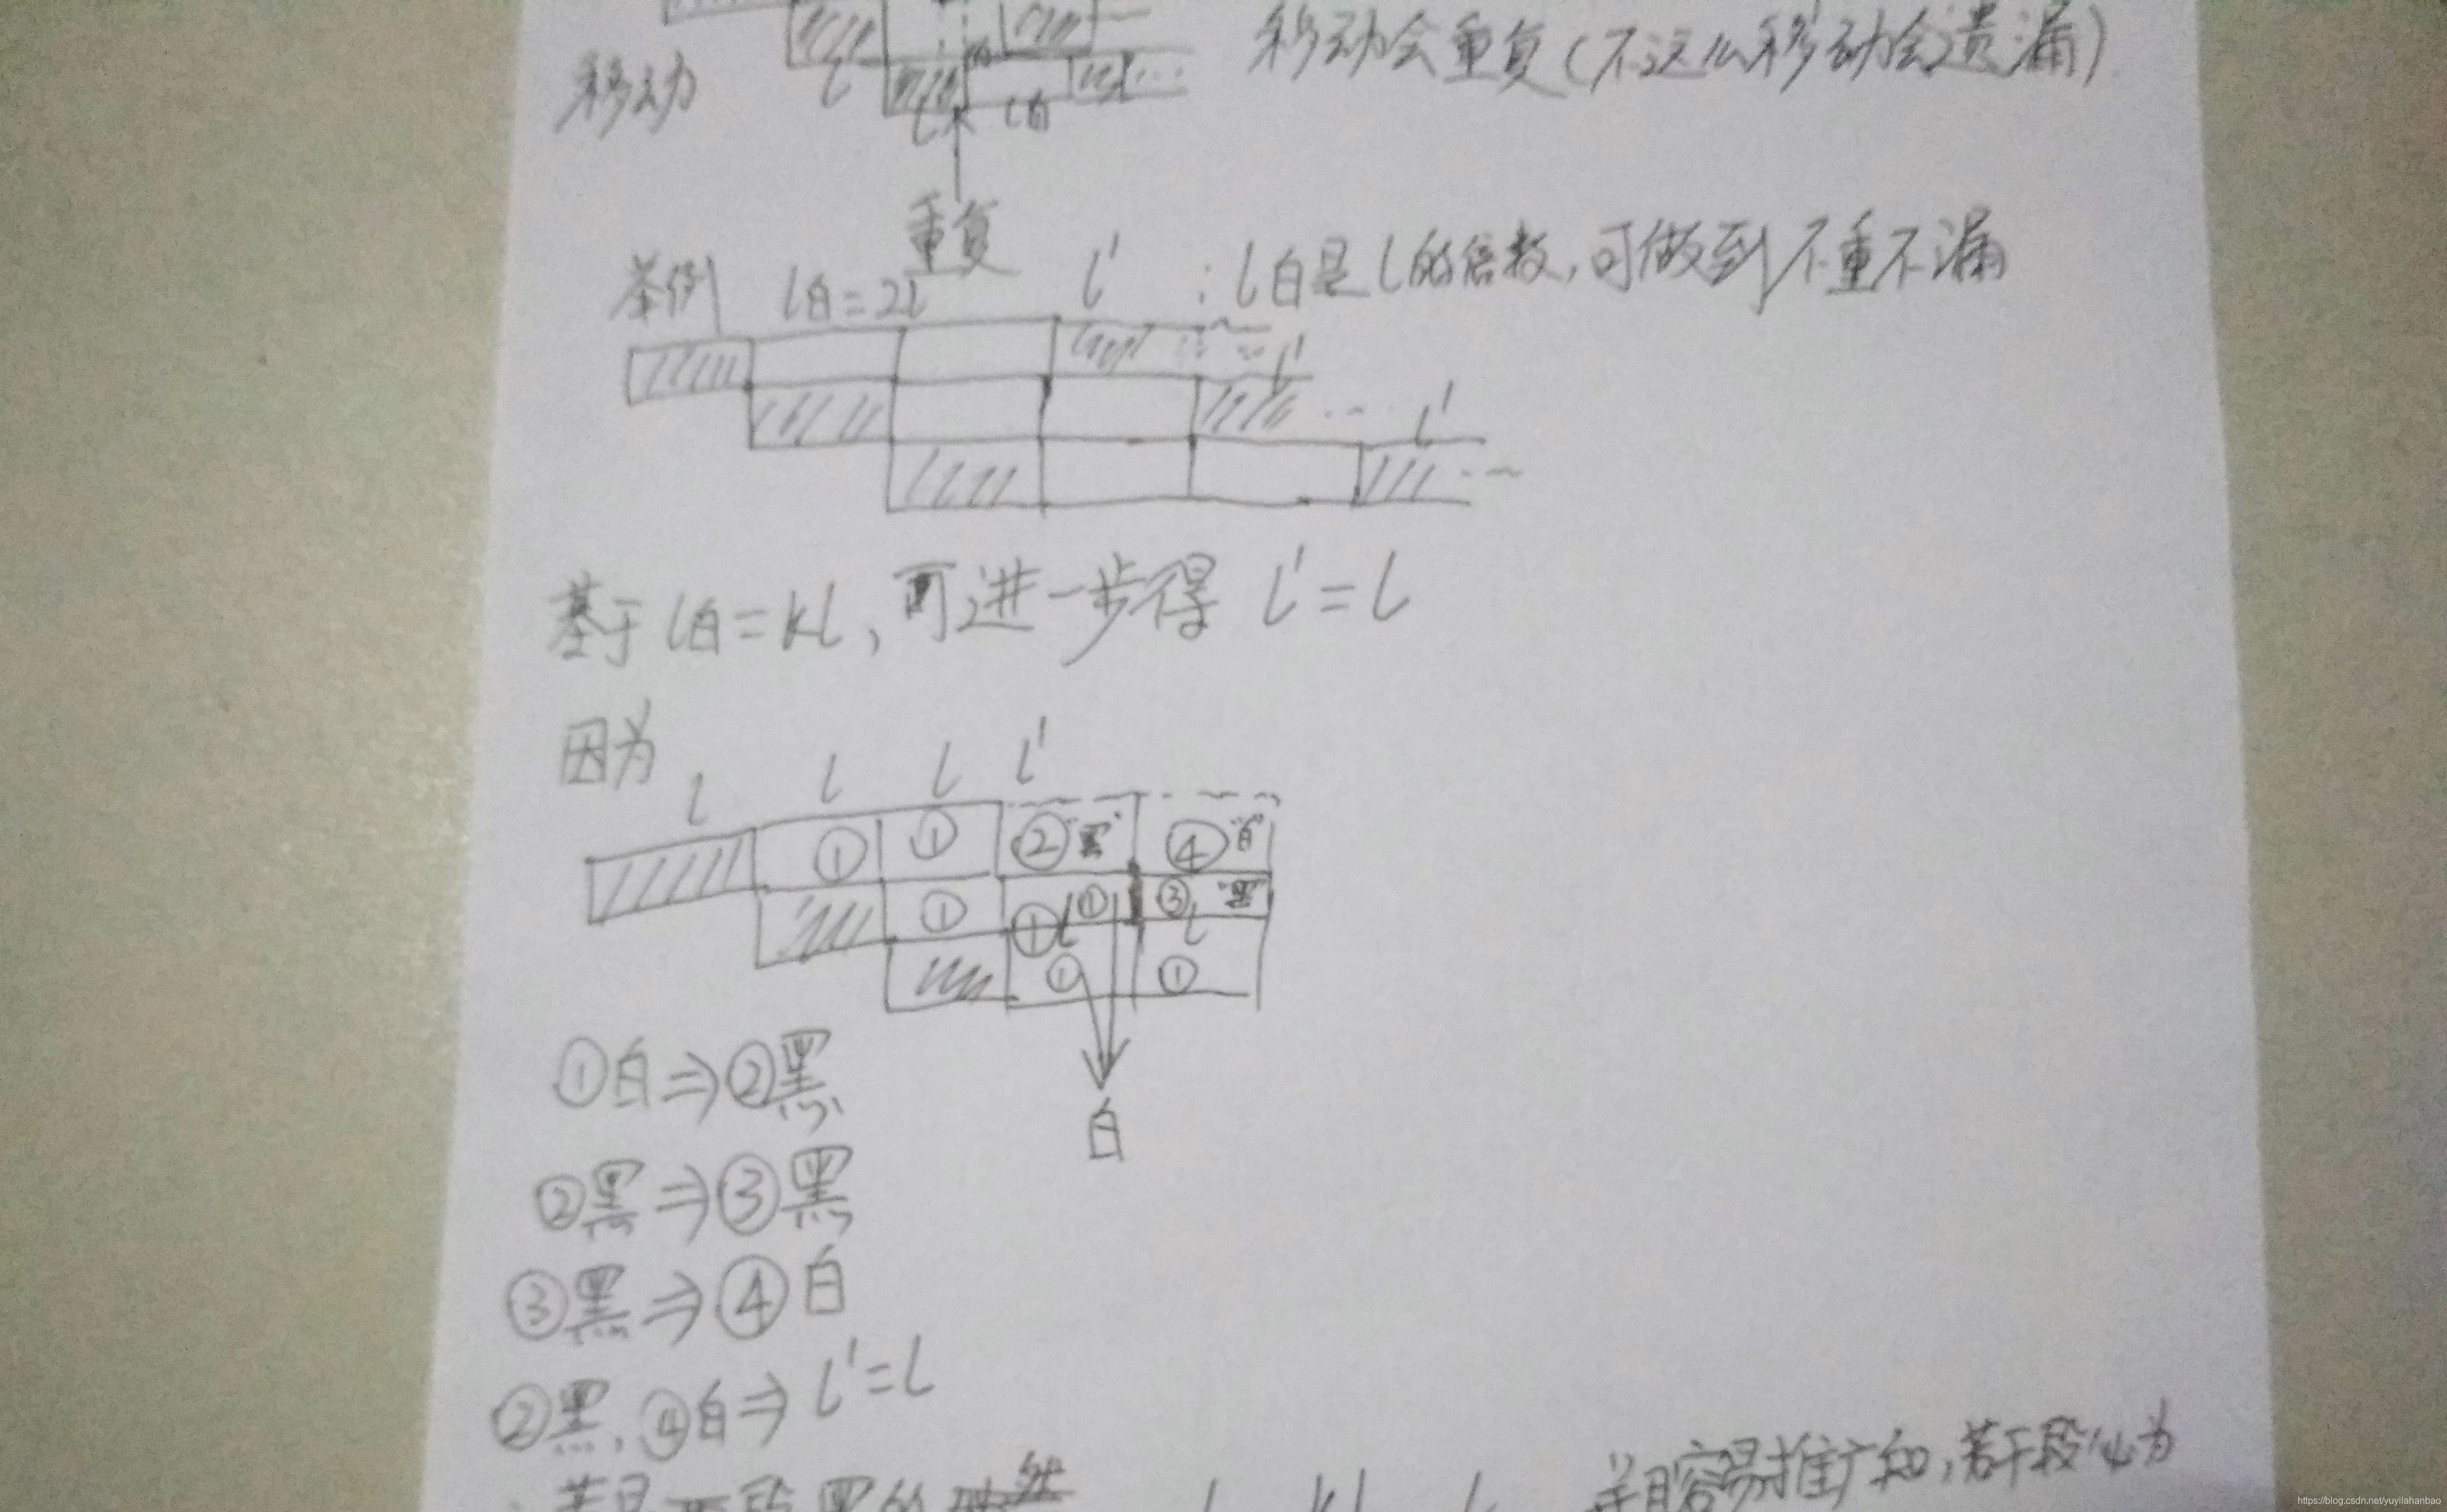 移动 l 移动会重复(不这么移动会遗漏)
l l白
重复
举例 l白=2l l' : l白是l的倍数,可做到不重不漏
l'
l'
基于l白=kl,可进一步得 l'=l
因为
l l l l'
① ① ②"黑" ④"白"
① ① l ① ③"黑"
① l ①
白
①白⇒②黑
②黑⇒③黑
③黑⇒④白
②黑,④白⇒l'=l
并且容易推广知,若干段必为
https://blog.csdn.net/yuyilahanbao